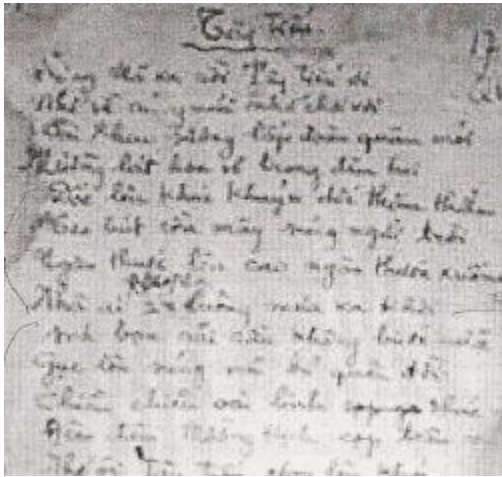 Tây Tiến
17
Sông Mã xa rồi Tây Tiến ơi
Nhớ về rừng núi nhớ chơi vơi
Sài Khao sương lấp đoàn quân mỏi
Mường Lát hoa về trong đêm hơi
Dốc lên khúc khuỷu dốc thăm thẳm
Heo hút cồn mây súng ngửi trời
Ngàn thước lên cao ngàn thước xuống
Nhà ai Pha Luông mưa xa khơi
Anh bạn dãi dầu không bước nữa
Gục lên súng mũ bỏ quên đời
Chiều chiều oai linh thác
Đêm đêm Mường Hịch cọp trêu
Nhớ ôi Tây Tiến cơm lên khói